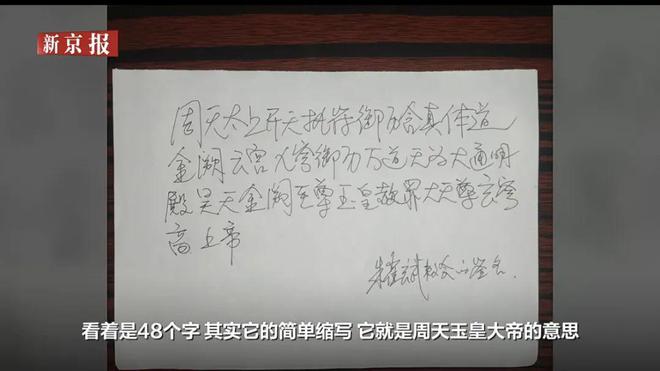 新京报
周天太上开天执符御历含真体道
金阙云宫 御历万道无为大通明
殿昊天金阙至尊玉皇赦罪大天尊玄穹
高上帝
朱
看着是48个字 其实它的简单缩写 它就是周天玉皇大帝的意思